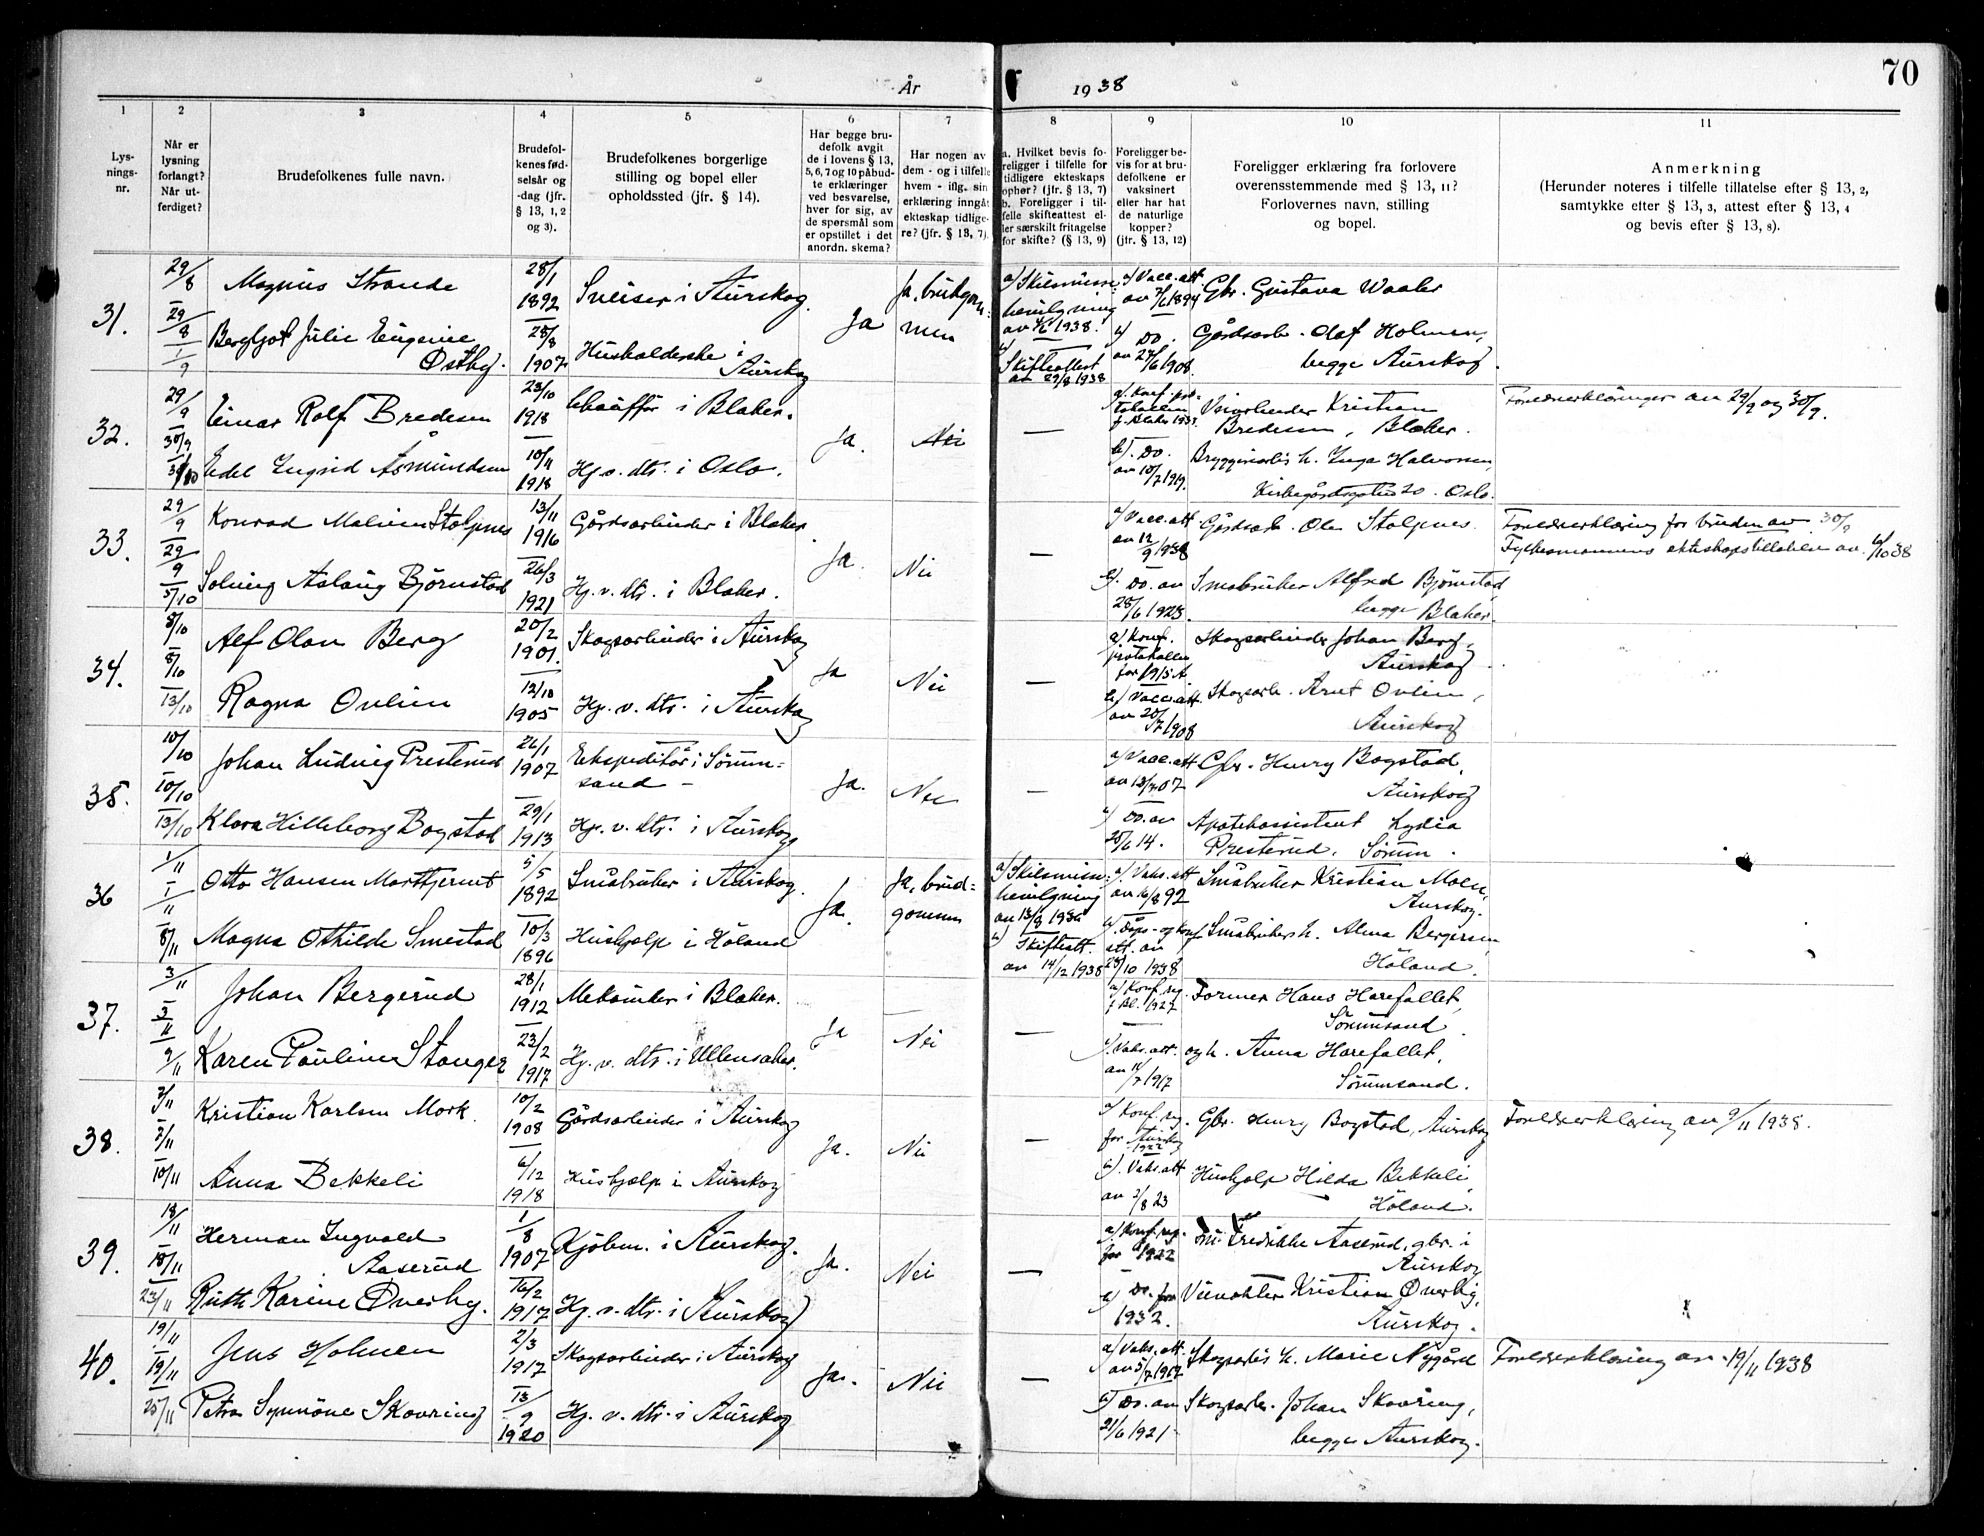 70
År 1938
1 2 3 4 5 6 7 8 9 10 11
Lys-
nings-
nr.
Når er
lysning
forlangt?
Når ut-
ferdiget?
Brudefolkenes fulle navn.
Brudefol-
kenes fød-
selsår og
-dag (jfr.
§ 13, 1, 2
og 3).
Brudefolkenes borgerlige
stilling og bopel eller
opholdssted (jfr. § 14).
Har begge bru-
defolk avgit
de i lovens § 13,
5, 6, 7 og 10 påbud-
te erklæringer
ved besvarelse,
hver for sig, av
de spørsmål som
er opstillet i det
anordn. skema?
Har nogen av
dem - og i tilfelle
hvem - iflg. sin
erklæring inngåt
ekteskap tidlige-
re? (jfr. § 13, 7).
a. Hvilket bevis fo-
religger i tilfelle for
tidligere ekteskaps
ophør? (jfr. § 13, 7)
b. Foreligger i til-
felle skifteattest el-
ler særskilt fritagelse
for skifte? (§ 13, 9)
Foreligger be-
vis for at bru-
defolkene er
vaksinert
eller har hat
de naturlige
kopper?
(jfr. § 13, 12)
Foreligger erklæring fra forlovere
overensstemmende med § 13, 11?
Forlovernes navn, stilling
og bopel.
Anmerkning
(Herunder noteres i tilfelle tillatelse efter § 13, 2,
samtykke efter § 13, 3, attest efter § 13, 4
og bevis efter § 13, 8).
31.
29/8
29/8
1/9
Magnus Strande
Bergljot Julie Eugenie
Østby.
28/1
1892
28/8
1907
Sveiser i Aurskog.
Husholderske i
Aurskog
Ja
Ja, brudgom-
men
a) Skilsmisse-
bevilgning
av 1938.
Skifteattest
av 29/8 1938
a) Vacc. att.
av 1894
b) Do.
av 27/6 1908.
Gbr. Gustava Waaler
Gårdsarb. Olaf Holmen,
begge Aurskog.
32.
29/9
30/9
Einar Rolf Bredesen
Edel Ingrid Åsmundsen
23/10
1918
10/11
1918
Chauffør i Blaker.
Hj. v. dtr. i Oslo.
Ja.
Nei
—
a). Konf. pro-
tokollen
f. Blaker 1933.
b). Do.
av 10/7 1919.
Kristian
Bredesen, Blaker.
Bryggeriarb's h. Inga Halvorsen,
Kirkegårdsgaten 20. Oslo.
Foreldreerklæringer av 29/9 og 30/9.
33.
29/9
29/9
5/10
Konrad Malvin Stolpnes
Solveig Aslaug Bjørnstad
13/11
1916
26/3
1921
Gårdsarbeider i Blaker.
Hj. v. dtr. i Blaker.
Ja.
Nei
—
a) Vacc. att
av 12/9 1938
b). Do. av
28/6 1928.
Gårdsarb. Ole Stolpnes.
Småbruker Alfred Bjørnstad
begge Blaker.
Foreldreerklæring for bruden av 30/9
Fylkesmannens ekteskapstillatelse av 4/10 38
34.
8/10
8/10
13/10
Alf Olav Berg
Ragna Ovlien
20/2
1901.
12/10
1905
Skogsarbeider i Aurskog
Hj. v. dtr. i Aurskog
Ja
Nei
—
a) Konf.
protokollen
for 1915 A
b) Vacc. att.
av 20/7 1908
Skogsarbeider Johan Berg,
Aurskog.
Skogsarb. Arnt Ovlien,
Aurskog
35.
10/10
10/10
13/10
Johan Ludvig Presterud
Klara Hilleborg Bogstad
26/1
1907
29/1
1913
Ekspeditør i Sørum-
sand –
Hj. v. dtr. i Aurskog
Ja.
Nei
—
a) Vacc. att
av 13/7 07
b) Do. av
25/6 14.
Gbr. Henry Bogstad,
Aurskog
Apotekassistent Lydia
Presterud, Sørum.
36
1/11
1/11
8/11
Otto Hansen Morttjernet
Magna Othilde Smestad
5/5
1892
10/3
1896
Småbruker i Aurskog.
Hushjelp i Høland
Ja.
Ja, brud-
gommen
a) Skilsmisse-
bevilgning
av 13/8 1936
b) Skifteatt.
av 14/12 1938
a). Vaks. att
av 16/8 92
b). Dåps- og konf.
att. av
28/10 1938
Småbruker Kristian Moen,
Aurskog.
Småbrukers h. Alma Bergersen
Høland.
37.
3/11
3/11
9/11
Johan Bergerud
Karen Pauline Stenger
28/1
1912
23/2
1917
Mekaniker i Blaker.
Hj. v. dtr. i Ullensaker.
Ja
Nei
—
a) Konf. reg.
f. Bl. 1927
b). Vaks. att.
av 1917
Former Hans Harefallet,
Sørumsand
og h. Anna Harefallet,
Sørumsand.
38.
10/11
Kristian Karlsen Mork.
Anna Bekkeli
10/2
1908
6/12
1918
Gårdsarbeider i Aurskog
Hushjelp i Aurskog
Ja.
Nei
—
a) Konf. reg.
for Aurskog
1922
b). Vaks. att
av 2/8 23
Gbr. Henry Bogstad, Aurskog
Hushjelp Hilda Bekkeli,
Høland.
Foreldreerklæring av 9/11 1938.
39.
18/11
18/11
23/11
Herman Ingvald
Aaserud
Ruth Karine Øverby.
1/8
1907
16/2
1917
Kjøbm. i Aurskog.
Hj. v. dtr. i Aurskog
Ja.
Nei
—
a) Konf. reg.
for 1922
b) Do. for
1932.
Fredrikke Aaserud, gbr. i
Aurskog
Kristian Øverby,
Aurskog.
40.
19/11
19/11
25/11
Jens Holmen
Petra Synnøve Skovring
2/3
1917
13/9
1920
Skogsarbeider i Aurskog
Hj. v. dtr. i Aurskog
Ja.
Nei
—
a) Vaks. att.
av 5/7 1917
b) Do. av
21/6 1921
Skogsarb's h. Marie Nygård
Skogsarb. Johan Skovring,
begge Aurskog.
Foreldreerklæring av 19/11 1938